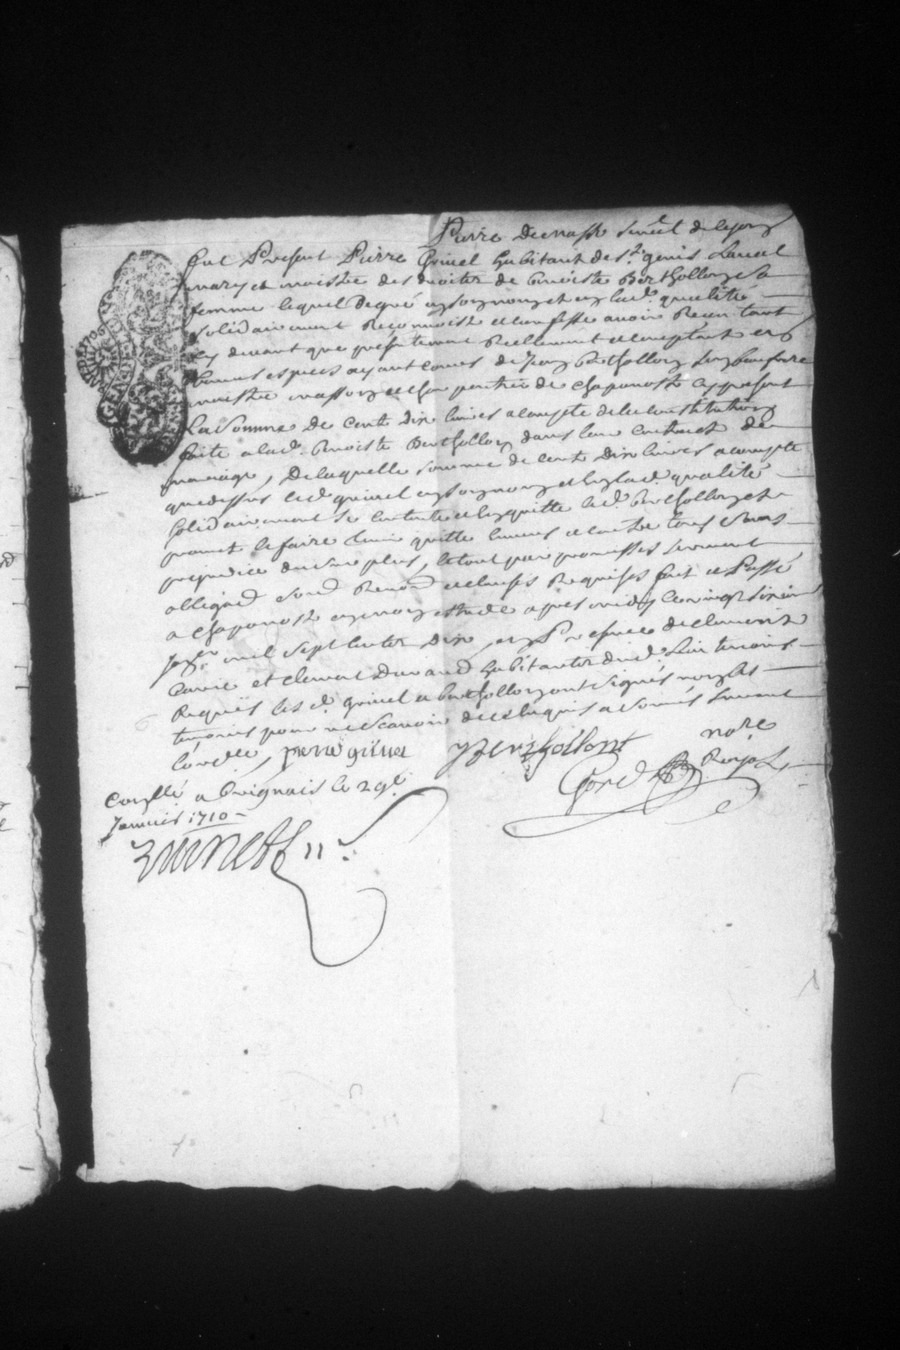 Pierre
fut Present Pierre Grivel habitant de St genis Laval
mary et maistre des droites de benoiste Bertholloz sa
femme lequel de gré et en lad. qualité
solidairement Reconnoist et confesse avoir Receu tant
cy devant que presentement Reellement et comptant en
bonnes especes ayant cours de Jean Berthollon son beaufrere
maistre masson et charpentier de chaponost cy present
La Somme de cent dix livres a compte de la constitution
faite a lad. benoiste Berthollon dans leur contract de
mariage, De laquelle somme de cent Dix livres a compte
que dessus led. grivel en son nom et en lad. qualité
solidairement se contente et en quitte led. Berthollon et
promet le faire tenir quitte envers et contre tous sans
prejudice du surplus, le tout par promesses serment
obligaon soud Renonon et clauses Requises fait et Passé
a Chaponost en mon estude apres midy le vingt sixie
janer mil sept cents Dix, en Presence de clement
et clement Durand habitants dud. Lieu temoins
Requis les d. grivel et berthollon ont signés non les
temoins pour ne scavoir de ce enquis et sommés suivant
lordce, pierre grivel J Berthollont
Gord nore Royal
Conllé a brignais le 29e
Janvier 1710